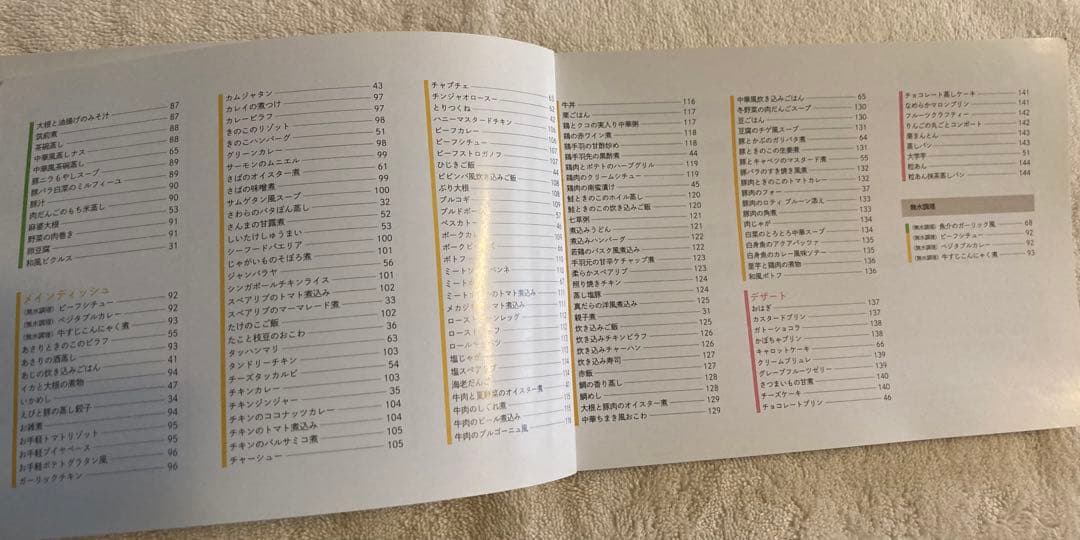 大根と油揚げのみそ汁 87
筑前煮 87
茶碗蒸し 88
中華風蒸しナス 88
中華風茶碗蒸し 65
豚ニラもやしスープ 89
豚バラ白菜のミルフィーユ 89
豚汁 90
肉だんごのもち米蒸し 90
麻婆大根 53
野菜の肉巻き 91
卵豆腐 91
和風ピクルス 31
メインディッシュ
〈無水調理〉ビーフシチュー 92
〈無水調理〉ベジタブルカレー 92
〈無水調理〉牛すじこんにゃく煮 93
あさりときのこのピラフ 55
あさりの酒蒸し 93
あじの炊き込みごはん 41
イカと大根の煮物 94
いかめし 47
えびと豚の蒸し餃子 34
お雑煮 94
お手軽トマトリゾット 95
お手軽ブイヤベース 95
お手軽ポテトグラタン風 96
ガーリックチキン 96
カムジャタン 43
カレイの煮つけ 97
カレーピラフ 97
きのこのリゾット 98
きのこハンバーグ 98
グリーンカレー 51
サーモンのムニエル 98
さばのオイスター煮 99
さばの味噌煮 61
サムゲタン風スープ 99
さわらのバタぽん蒸し 100
さんまの甘露煮 32
しいたけしゅうまい 52
シーフードパエリア 100
じゃがいものそぼろ煮 101
ジャンバラヤ 101
シンガポールチキンライス 56
スペアリブのトマト煮込み 102
スペアリブのマーマレード煮 102
たけのこご飯 33
たこと枝豆のおこわ 102
タッハンマリ 36
タンドリーチキン 63
チーズタッカルビ 103
チキンカレー 54
チキンジンジャー 103
チキンのココナッツカレー 35
チキンのトマト煮込み 104
チキンのバルサミコ煮 104
チャーシュー 105
チャプチェ
チンジャオロース―
とりつくね
ハニーマスタードチキン
ビーフカレー
ビーフシチュー
ビーフストロガノフ
ひじきご飯
ビビンバ風炊き込みご飯
ぶり大根
プルコギ
ペスカトー
ポークカ
ポークビー
ポトフ
海老だんご
牛肉と夏野菜のオイスター煮
牛肉のしぐれ煮
牛肉のビール煮込み
牛肉のブルゴーニュ風
牛丼 116
栗ごはん 116
鶏とクコの実入り中華粥 117
鶏の赤ワイン煮 117
鶏手羽の甘酢炒め 118
鶏手羽先の黒酢煮 118
鶏肉とポテトのハーブグリル 44
鶏肉のクリームシチュー 119
鶏肉の南蛮漬け 119
鮭ときのこのホイル蒸し 45
鮭ときのこの炊き込みご飯 120
七草粥 120
煮込みうどん 121
煮込みハンバーグ 121
若鶏のバスク風煮込み 122
手羽元の甘辛ケチャップ煮 122
柔らかスペアリブ 123
照り焼きチキン 123
蒸し塩豚 124
真だらの洋風煮込み 124
親子煮 125
炊き込みご飯 31
炊き込みチキンピラフ 125
炊き込みチャーハン 126
炊き込み寿司 126
赤飯 127
鯛の香り蒸し 127
鯛めし 128
大根と豚肉のオイスター煮 128
中華ちまき風おこわ 129
中華風炊き込みごはん 65
冬野菜の肉だんごスープ 130
豆ごはん 130
豆腐のチゲ風スープ 131
豚とかぶのガリバタ煮 64
豚ときのこの生姜煮 131
豚とキャベツのマスタード煮 132
豚バラのすき焼き風煮 55
豚肉ときのこのトマトカレー 132
豚肉のフォー 37
豚肉のロティ プルーン添え 133
豚肉の角煮 133
肉じゃが 134
白菜のとろとろ中華スープ 134
白身魚のアクアパッツァ 135
白身魚のカレー風味ソー 135
里芋と鶏肉の煮物 136
和風ポトフ 136
デザート
おはぎ 137
カスタードプリン 137
ガトーショコラ 138
かぼちゃプリン 138
キャロットケーキ 66
クリームブリュレ 139
グレープフルーツゼリー 139
さつまいもの甘煮 140
チーズケーキ 140
チョコレートプリン 46
チョコレート蒸しケーキ 141
なめらかマロンプリン 141
フルーツクラフティー 142
りんごの丸ごとコンポート 142
栗きんとん 143
蒸しパン 143
大学芋 51
粒あん 144
粒あん抹茶蒸しパン 144
無水調理
〈無水調理〉魚介のガーリック風 68
〈無水調理〉ビーフシチュー 92
〈無水調理〉ベジタブルカレー 92
〈無水調理〉牛すじこんにゃく煮 93